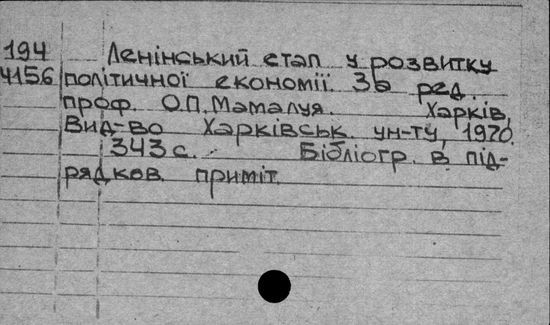 194 Ленінський етап у розвитку
4156 політичної економії. За ред.
проф. О.П.Мамалуя. Харків,
Вид-во Харківськ. ун-ту, 1970.
343 с. Бібліогр. в під-
рядков. приміт.